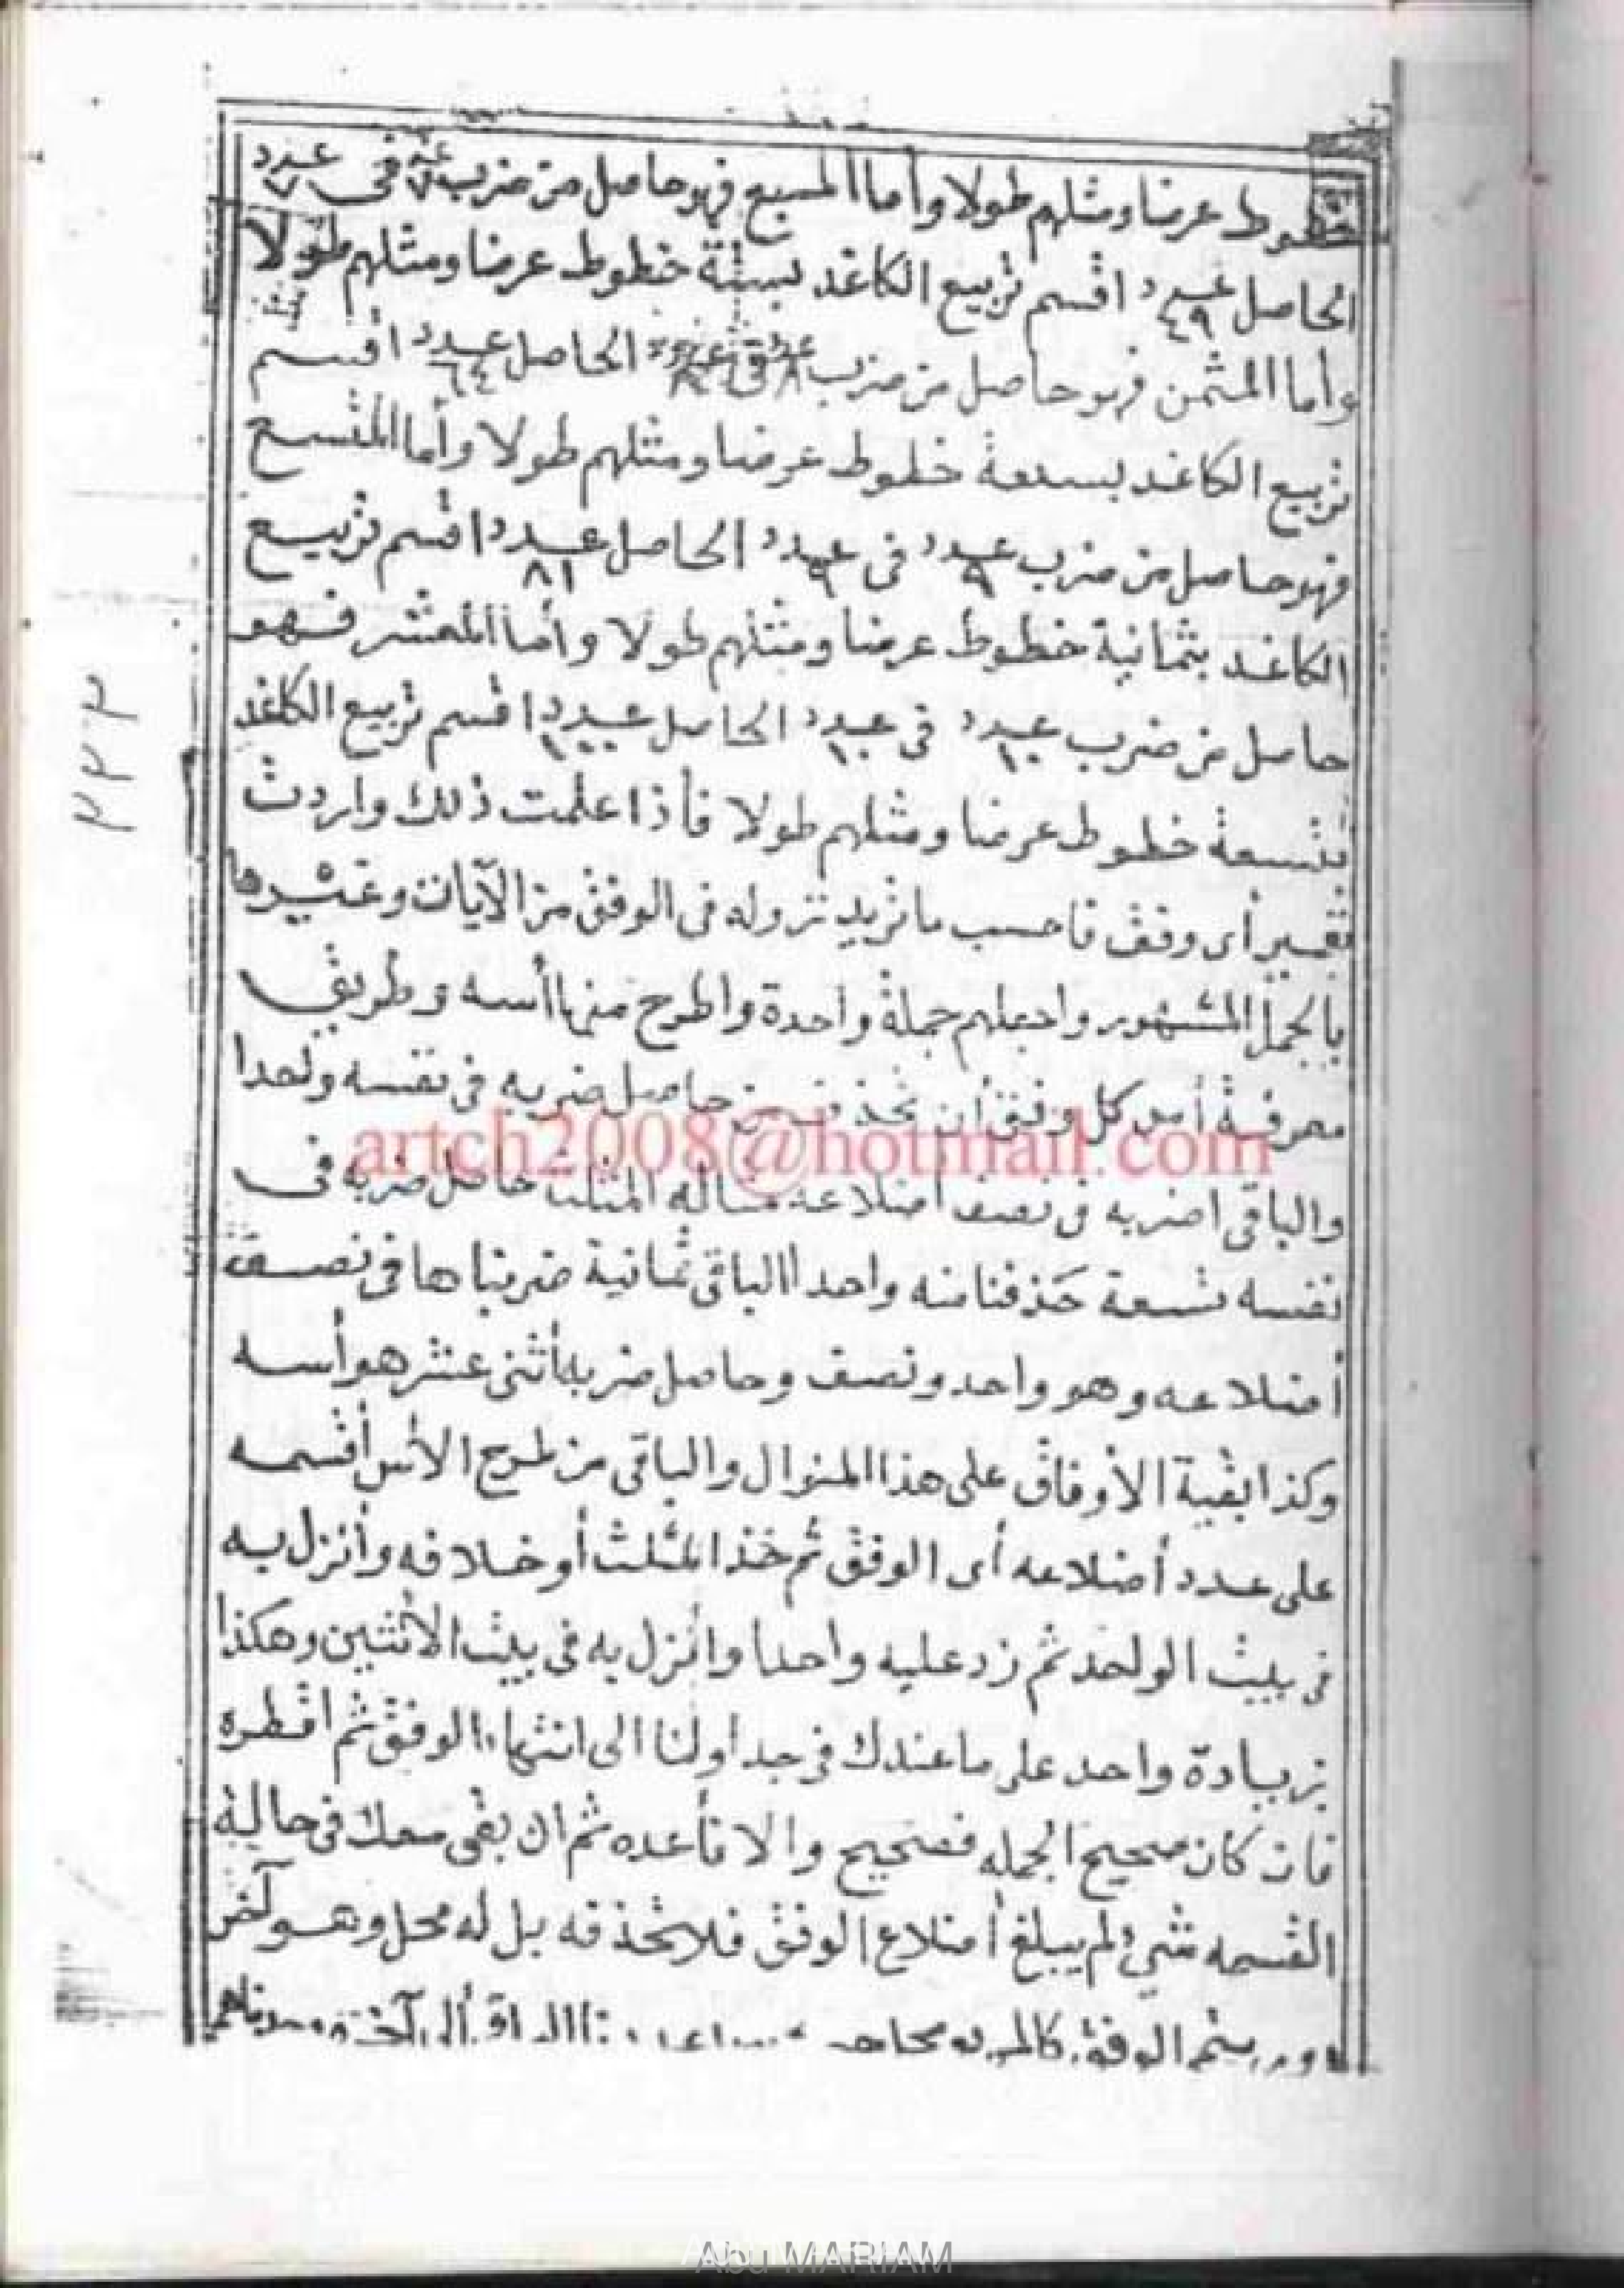 خطوط عرضا ومثلهم طولا وأما المسبع فهو حاصل من ضرب عدد ٧ فى عدد ٧
الحاصل عدد ٤٩ اقسم تربيع الكاغد بستة خطوط عرضا ومثلهم طولا
وأما المثمن فهو حاصل من ضرب عدد ٨ فى عدد ٨ الحاصل عدد ٦٤ اقسم
تربيع الكاغد بسبعة خطوط عرضا ومثلهم طولا وأما المتسع
فهو حاصل من ضرب عدد ٩ فى عدد ٩ الحاصل عدد ٨١ اقسم تربيع
الكاغد بثمانية خطوط عرضا ومثلهم طولا وأما المعشر فهو
حاصل من ضرب عدد ١٠ فى عدد ١٠ الحاصل عدد ١٠٠ اقسم تربيع الكاغد
بتسعة خطوط عرضا ومثلهم طولا فأذا علمت ذلك واردت
أى وفق فاحسب ما تريد نزوله فى الوفق من الآيات وغيرها
بالجمل المشهور واجملهم جملة واحدة واطرح منها أسه وطريق
معرفة أس كل وفق أن تحذف من حاصل ضربه فى نفسه واحدا
والباقى اضربه فى نصف اضلاعه مثاله المثلث حاصل ضربه فى
نفسه تسعة حذفنا منه واحدا الباقى ثمانية ضربناها فى نصف
أضلاعه وهو واحد ونصف وحاصل ضربه أثنى عشر هو أسه
وكذا بقية الأوفاق على هذا المنوال والباقى من طرح الأس أقسمه
على عدد أضلاعه أى الوفق ثم خذ المثلث أو خلافه وأنزل به
فى بيت الواحد ثم زد عليه واحدا وانزل به فى بيت الأثنين وهكذا
بزيادة واحد على ما عندك فى جداولنا الى انتهاء الوفق ثم اقطره
فان كان صحيح الجمله فصحيح والا فأعده ثم ان بقى معك فى حالية
القسمه شئ لم يبلغ أضلاع الوفق فلا تحذفه بل له محل وهو آخر
الوفق
٣٣٣
artch2008@hotmail.com
Abu MARIAM